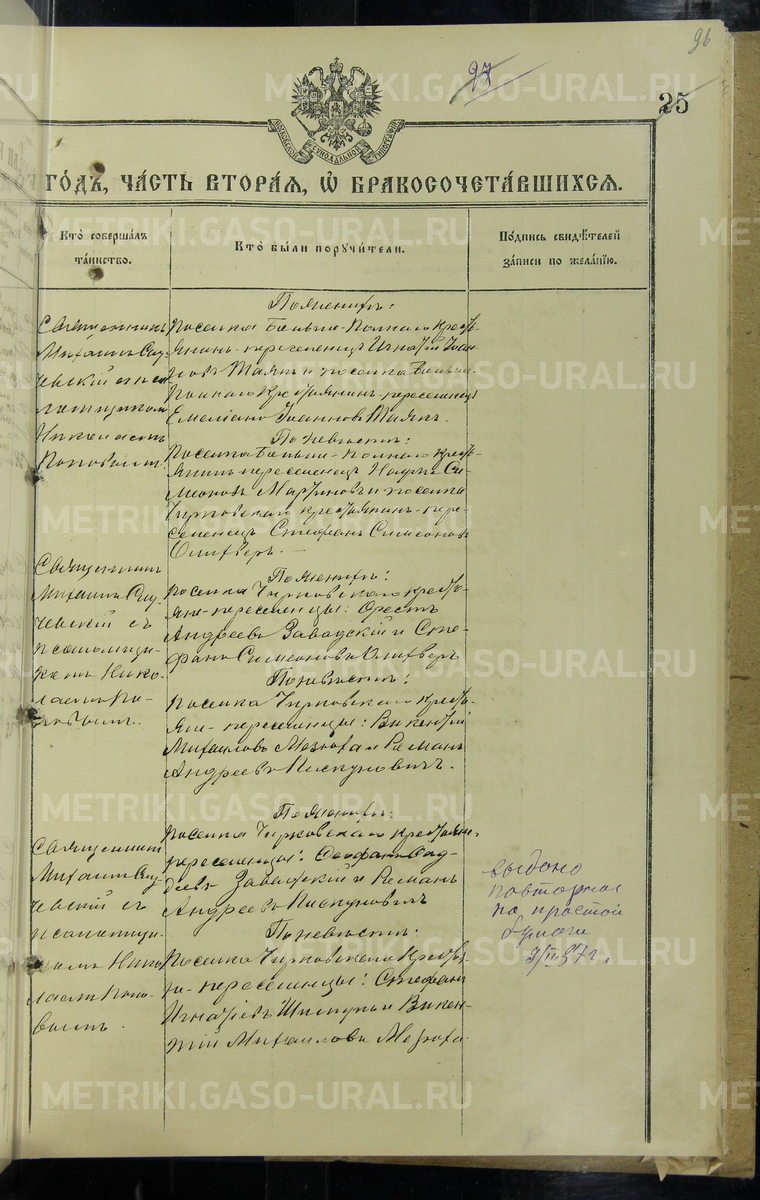 96
97
25
МОСКОВСКОЙ СѴНОДАЛЬНОЙ ТИПОГРАФІИ
ГО́ДЪ, ЧА́СТЬ ВТОРА́Я, Ѡ҆ БРАКОСОЧЕТА́ВШИХСЯ.
Кто̀ соверша́лъ
та́инство.
Кто̀ бы́ли поручи́тели.
По́дпись свидѣ́телей
за́писи по жела́нію.
Священникъ
Михаилъ
псаломщикомъ
Николаемъ
Поповымъ.
По женихѣ:
поселка крестья-
янинъ-переселенецъ Игнатій Іоан-
новъ Маякъ и поселка
крестьянинъ-переселенецъ
Емеліанъ Іоанновъ Маякъ.
По невѣстѣ:
поселка кресть-
янинъ-переселенецъ Наумъ Си-
меоновъ Мартиновъ и поселка
Чирковскаго крестьянинъ-пере-
селенецъ Стефанъ Симеоновъ
Олиферъ.
Священникъ
Михаилъ
съ
псаломщи-
комъ Нико-
лаемъ По-
повымъ.
По женихѣ:
поселка Чирковскаго кресть-
яне-переселенцы: Орестъ
Андреевъ Завадскій и Сте-
фанъ Симеоновъ Олиферъ
По невѣстѣ:
поселка Чирковскаго кресть-
яне-переселенцы: Викентій
Михаиловъ Мазюха и Романъ
Андреевъ Пискуновичъ.
Священникъ
Михаилъ
съ
псаломщи-
комъ Нико-
лаемъ Попо-
вымъ.
По женихѣ:
поселка Чирковскаго крестьяне-
переселенцы: Ѳеофанъ Фад-
деевъ Завадскій и Романъ
Андреевъ Пискуновичъ
По невѣстѣ:
поселка Чирковскаго кресть-
яне-переселенцы: Стефанъ
Игнатіевъ и Викен-
тій Михаиловъ Мазюха.
выдано
повторное
на простой
бумаге
METRIKI.GASO-URAL.RU